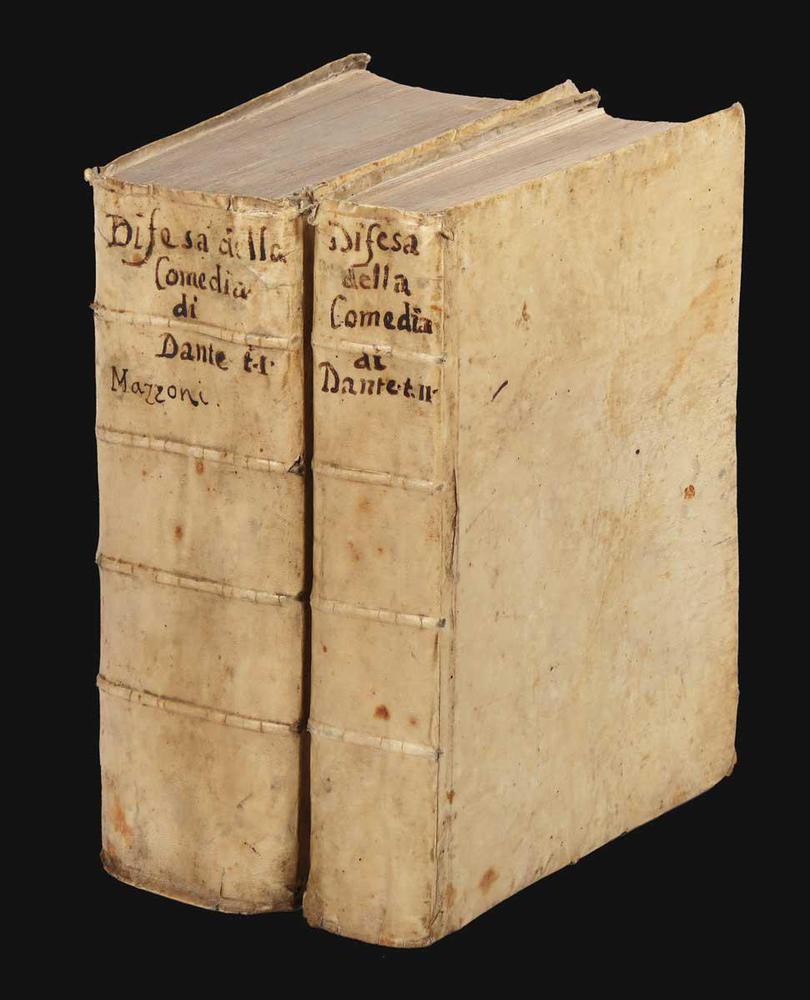 Difesa della
Comedia
di
Dante t.I.
Mazzoni.
Difesa
della
Comedia
di
Dante.t.II.